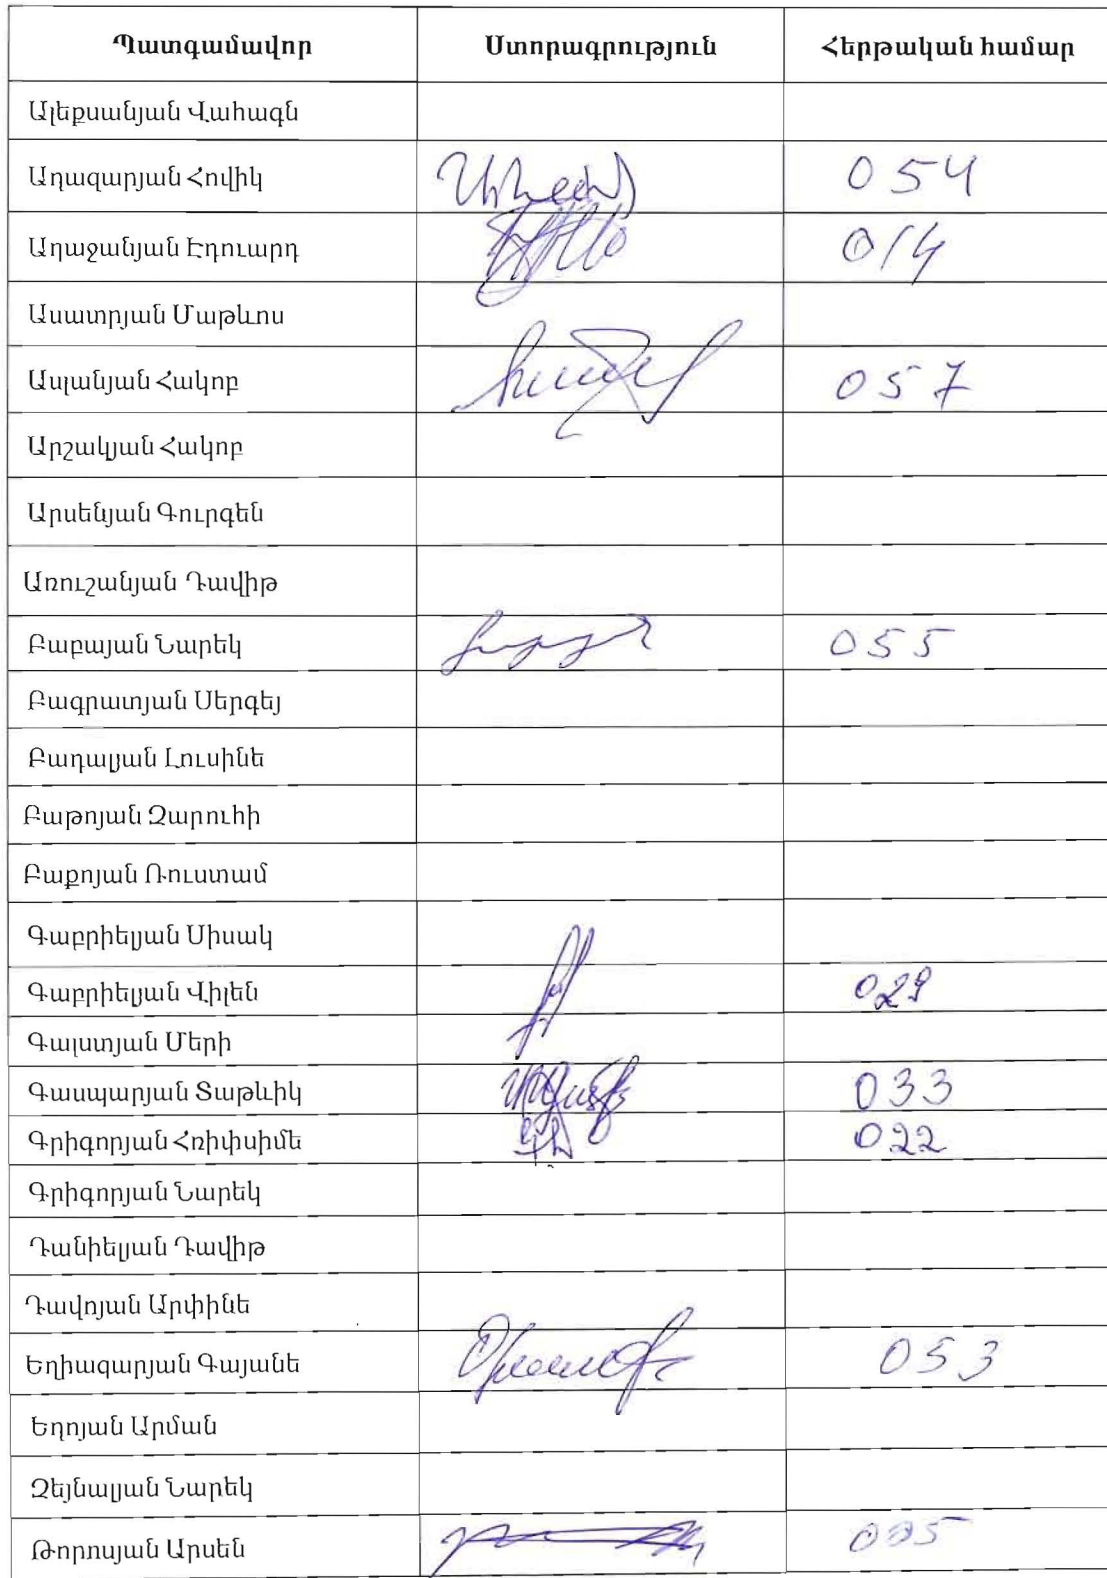 Պատգամավոր Ստորագրություն Հերթական համար
Ալեքսանյան Վահագն
Աղազարյան Հովիկ 054
Աղաջանյան Էդուարդ 014
Ասատրյան Մաթևոս
Ասլանյան Հակոբ 057
Արշակյան Հակոբ
Արսենյան Գուրգեն
Առուշանյան Դավիթ
Բաբայան Նարեկ 055
Բագրատյան Սերգեյ
Բադալյան Լուսինե
Բաթոյան Զարուհի
Բաքոյան Ռուստամ
Գաբրիելյան Սիսակ
Գաբրիելյան Վիլեն 029
Գալստյան Մերի
Գասպարյան Տաթևիկ 033
Գրիգորյան Հռիփսիմե 022
Գրիգորյան Նարեկ
Դանիելյան Դավիթ
Դավոյան Արփինե
Եղիազարյան Գայանե 053
Եղոյան Արման
Զեյնալյան Նարեկ
Թորոսյան Արսեն